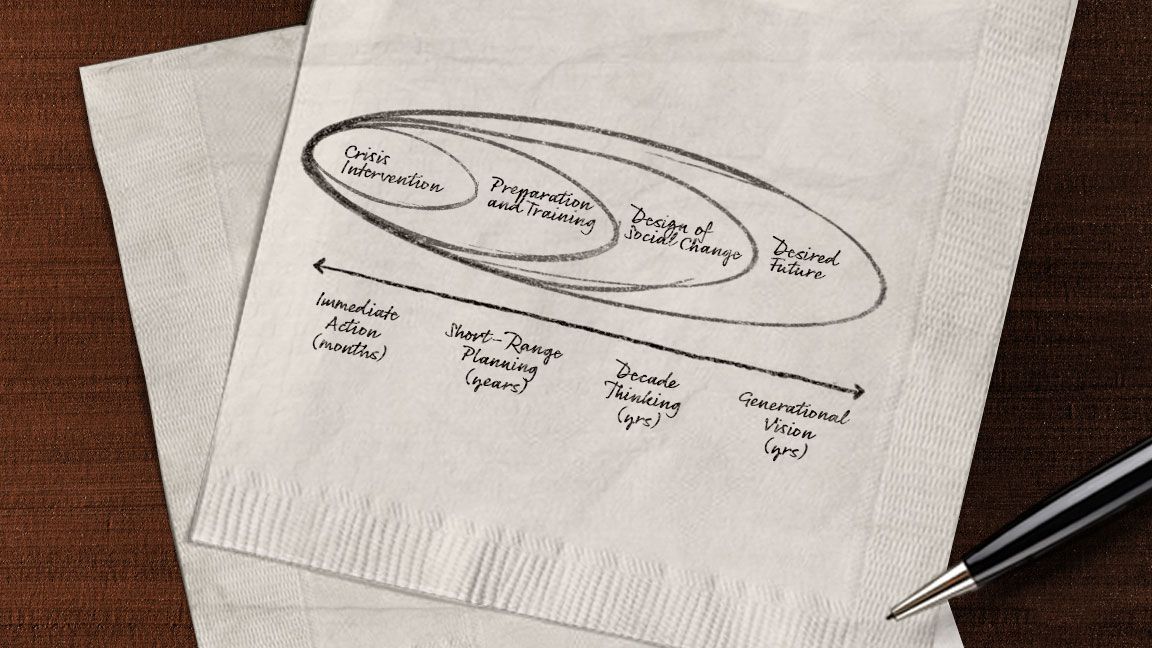 Crisis
Intervention
Preparation
and Training
Design of
Social Change
Desired
Future
Immediate
Action
(months)
Short-Range
Planning
(years)
Decade
Thinking
(yrs)
Generational
Vision
(yrs)